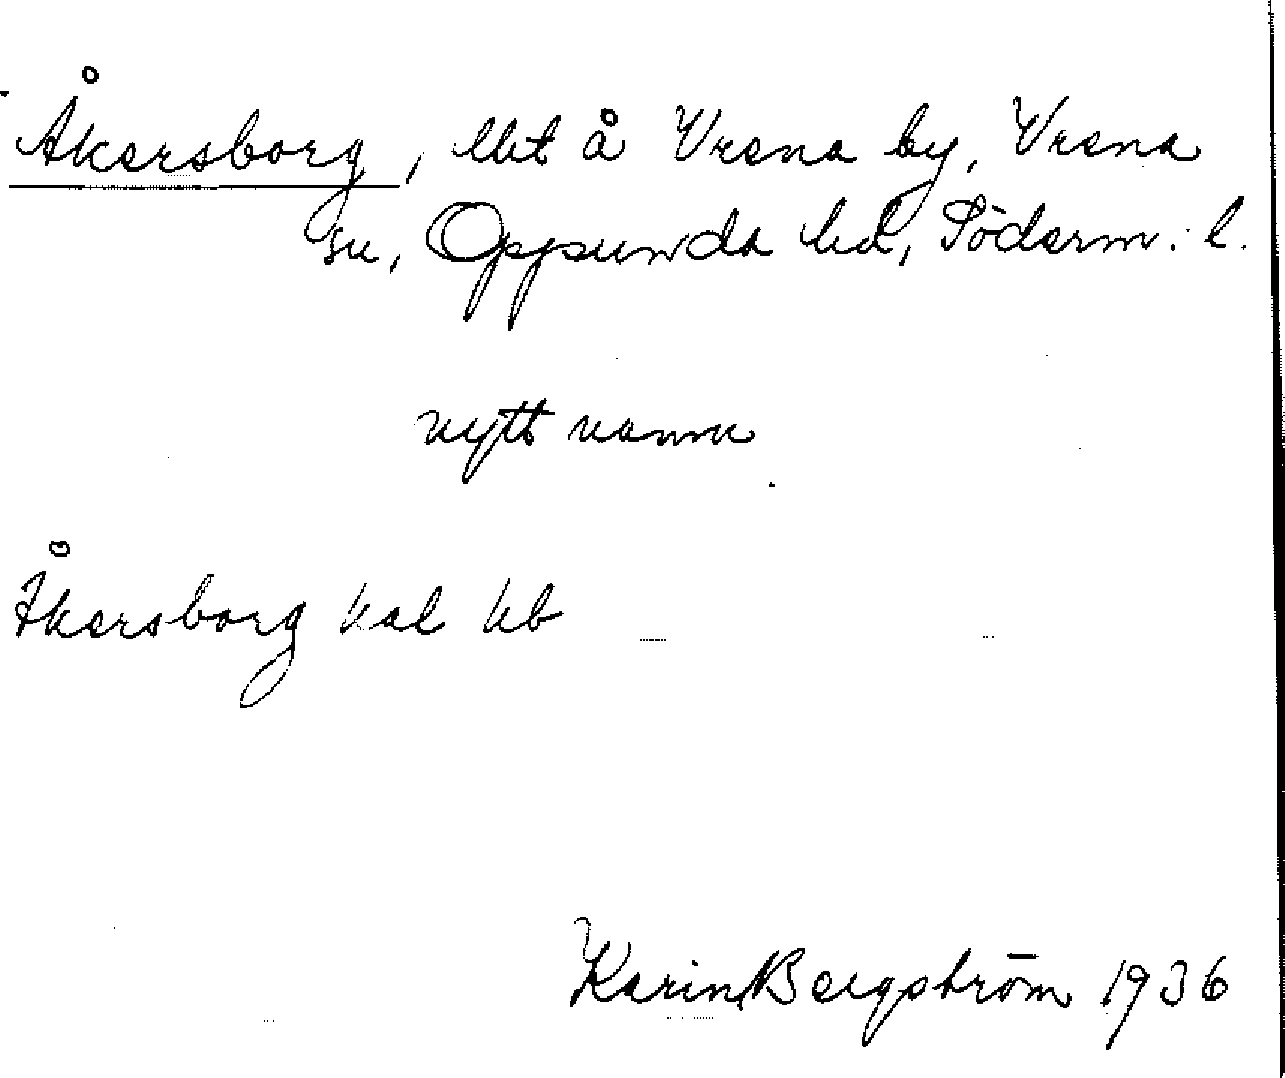 Åkersborg, lht å Vrena by, Vrena
sn, Oppunda hd, Söderm. l.
nytt namn
Åkersborg kal hb
Karin Bergström 1936